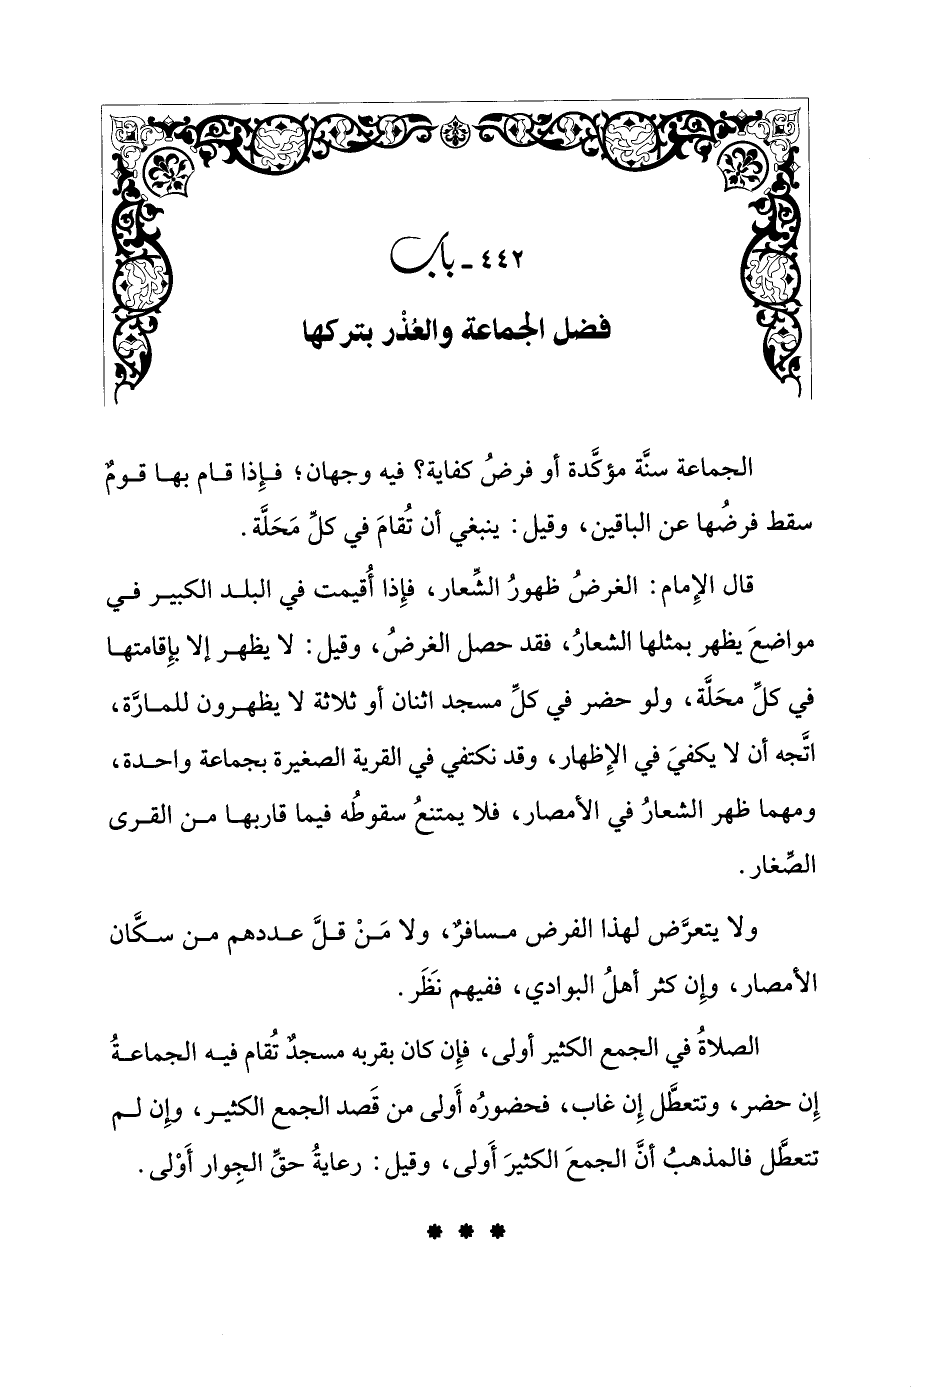 ٤٤٢ ـ باب
فضل الجماعة والعُذْر بتركها
الجماعة سنَّة مؤكَّدة أو فرضُ كفاية؟ فيه وجهان؛ فإذا قام بها قومٌ
سقط فرضُها عن الباقين، وقيل: ينبغي أن تُقامَ في كلِّ مَحَلَّة.
قال الإمام: الغرضُ ظهورُ الشِّعار، فإذا أُقيمت في البلد الكبير في
مواضعَ يظهر بمثلها الشعارُ، فقد حصل الغرضُ، وقيل: لا يظهر إلا بإقامتها
في كلِّ محَلَّة، ولو حضر في كلِّ مسجد اثنان أو ثلاثة لا يظهرون للمارَّة،
اتَّجه أن لا يكفيَ في الإظهار، وقد نكتفي في القرية الصغيرة بجماعة واحدة،
ومهما ظهر الشعارُ في الأمصار، فلا يمتنعُ سقوطُه فيما قاربها من القرى
الصِّغار.
ولا يتعرَّض لهذا الفرض مسافرٌ، ولا مَنْ قلَّ عددهم من سكَّان
الأمصار، وإن كثر أهلُ البوادي، ففيهم نَظَر.
الصلاةُ في الجمع الكثير أولى، فإن كان بقربه مسجدٌ تُقام فيه الجماعةُ
إن حضر، وتتعطَّل إن غاب، فحضورُه أَولى من قَصد الجمع الكثير، وإن لم
تتعطَّل فالمذهبُ أنَّ الجمعَ الكثيرَ أَولى، وقيل: رعايةُ حقِّ الجِوار أَوْلى.
* * *